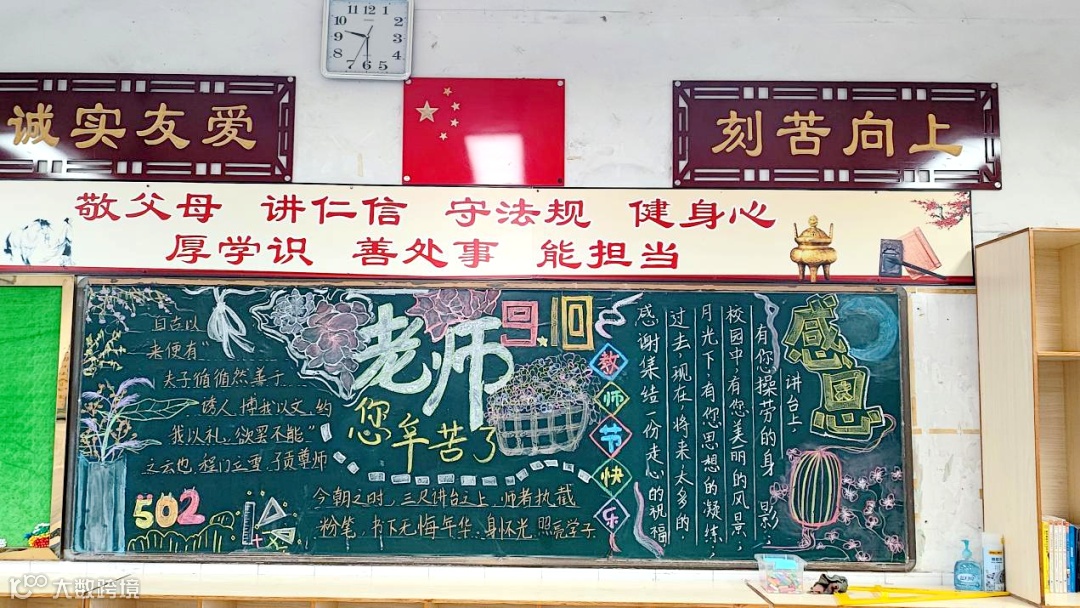 12
11
1
10
2
9
3
8
4
7
6
5
诚实友爱
刻苦向上
敬父母 讲仁信 守法规 健身心
厚学识 善处事 能担当
自古以
来便有“
夫子循循然善于
诱人,博我以文,约
我以礼,欲罢不能。”
之云也,程门立雪,子贡尊师
502
老师
您辛苦了
9.10
今朝之时,三尺讲台之上,师者执截
粉笔,书下无悔年华,身怀光,照亮学子
教师节快乐
感恩
讲台上,
有您操劳的身影;
校园中,有您美丽的风景;
月光下,有您思想的凝练;
过去,现在,将来,太多的
感谢集结一份走心的祝福
大数跨境